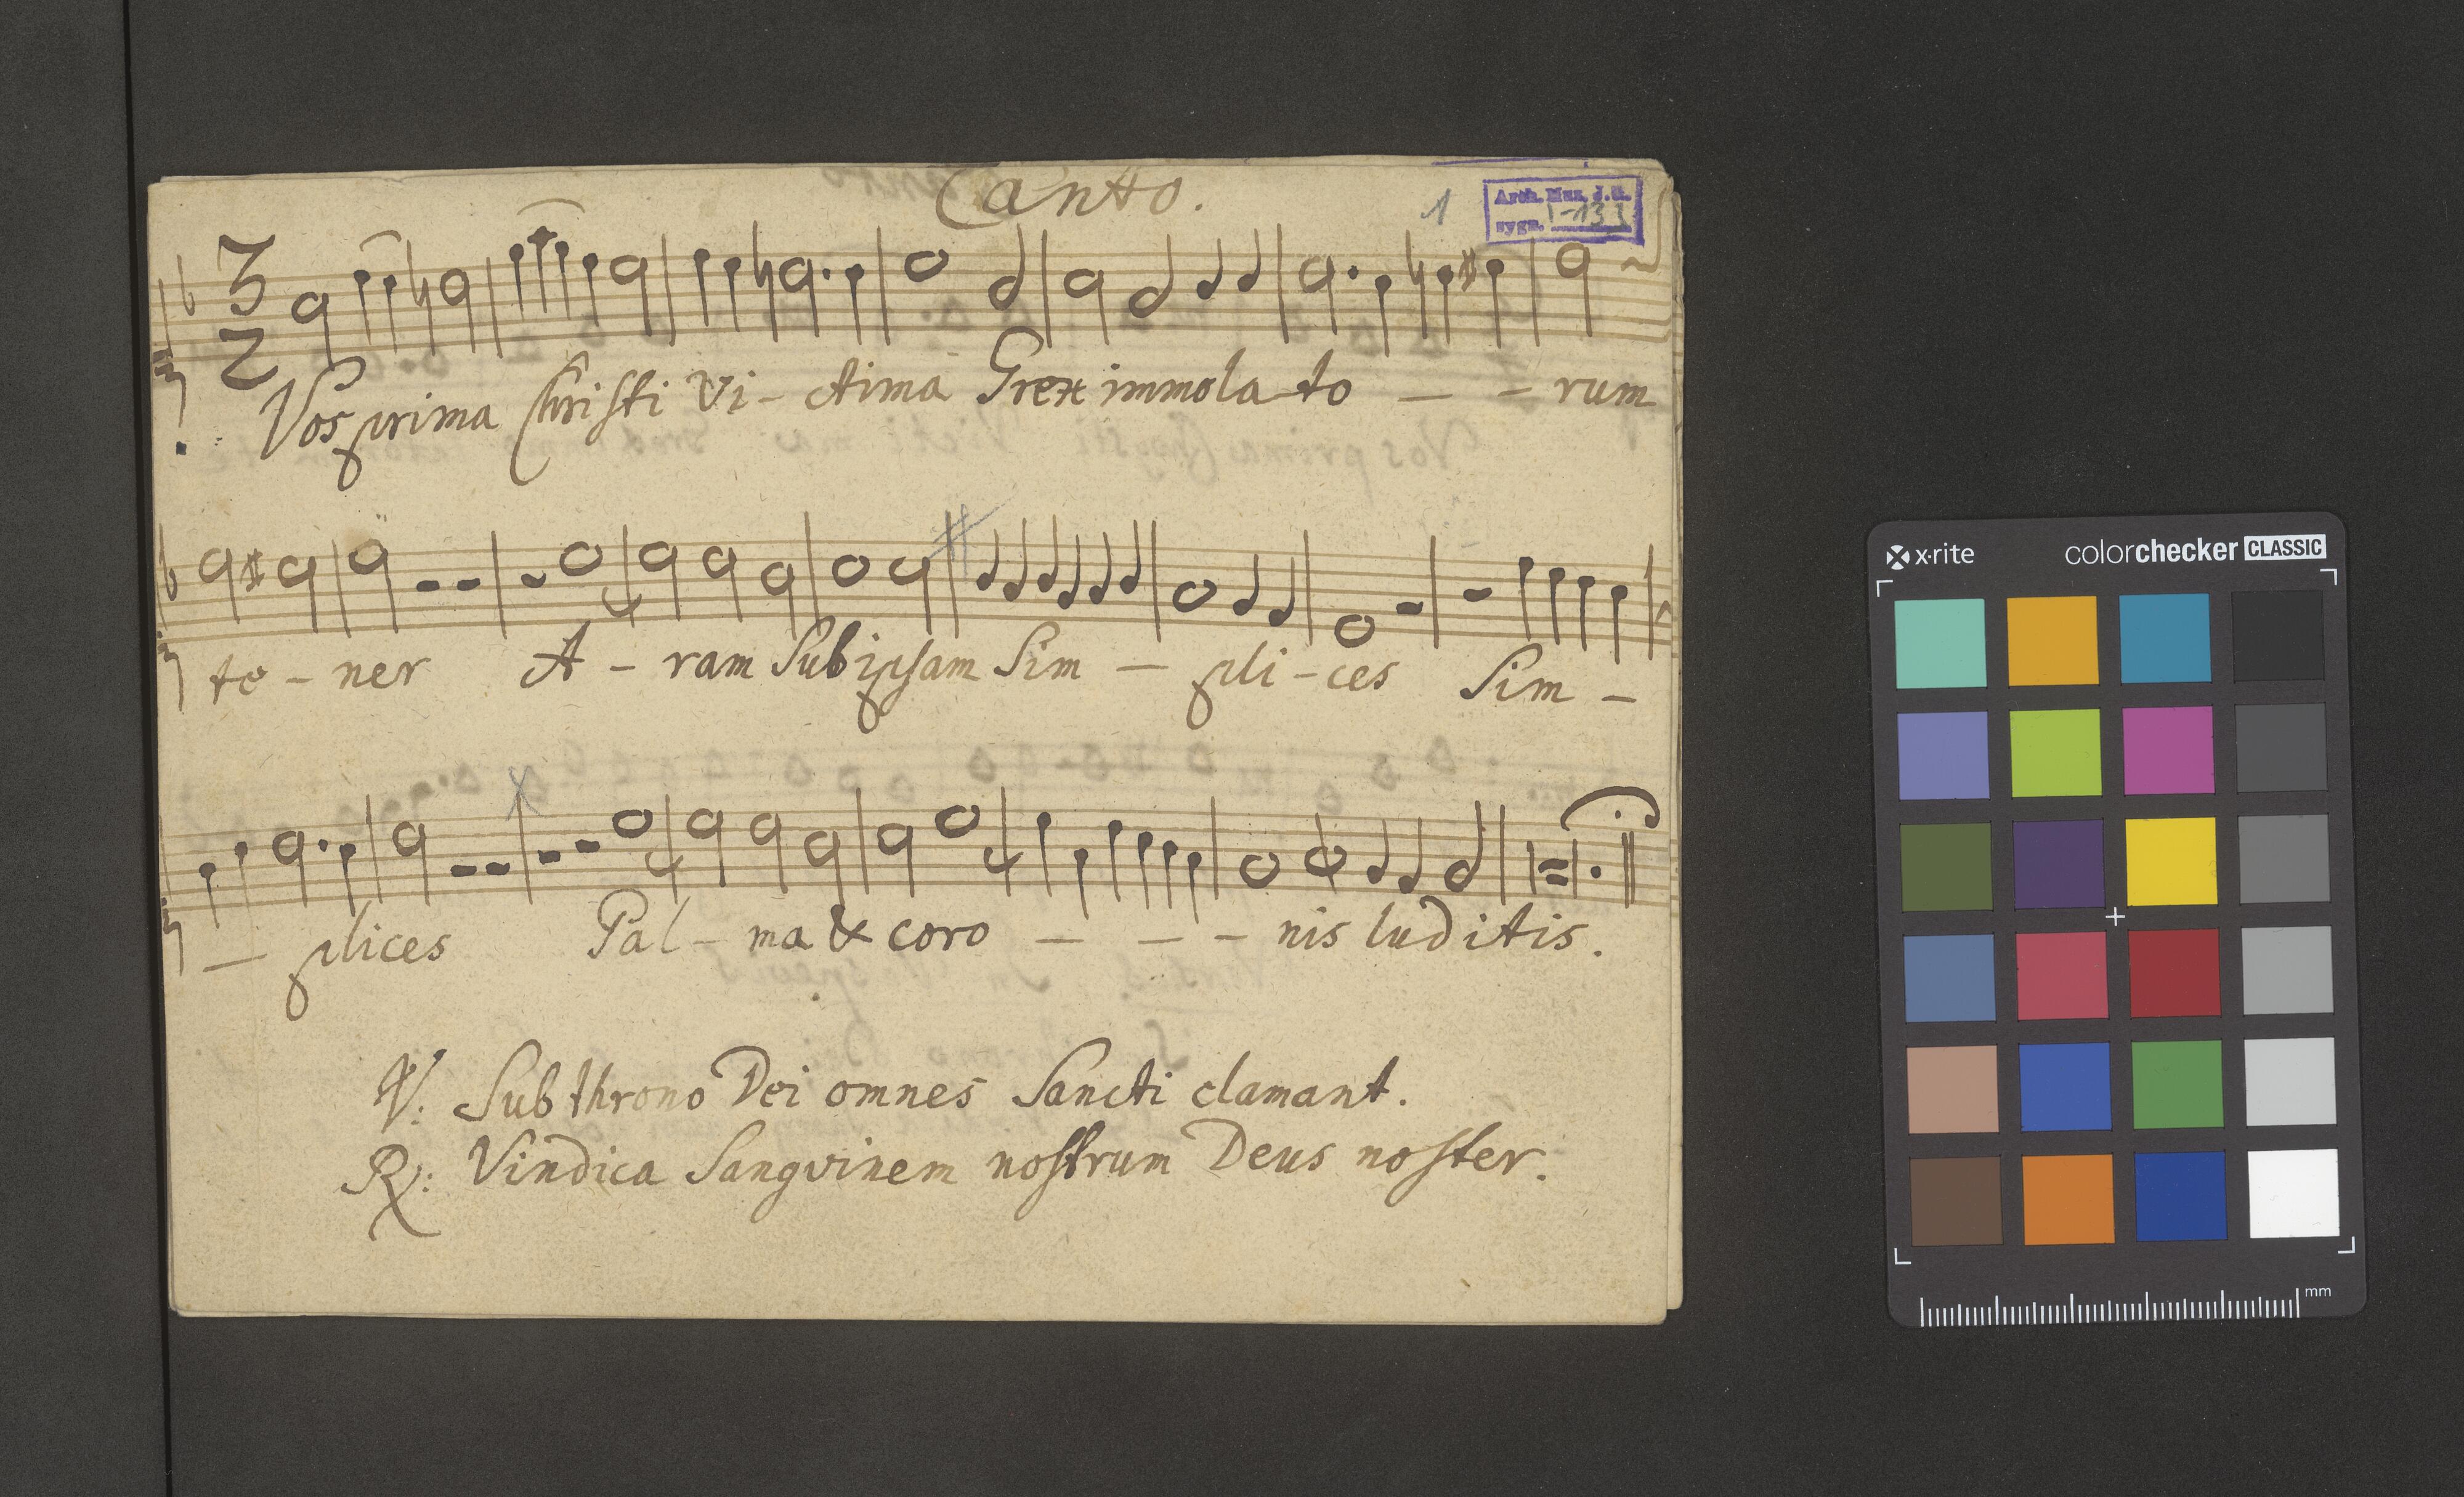 Canto.
1
Arch. Muz. J.G.
sygn. I-133
3
2
Vos prima Christi Vi - ctima Grex immola - to - - rum
te - ner A - ram Sub ipsam Sim - pli - ces Sim -
- plices Pal - ma & coro - - - nis luditis.
V: Sub throno Dei omnes Sancti clamant.
R: Vindica Sangvinem nostrum Deus noster.
x-rite colorchecker CLASSIC
mm